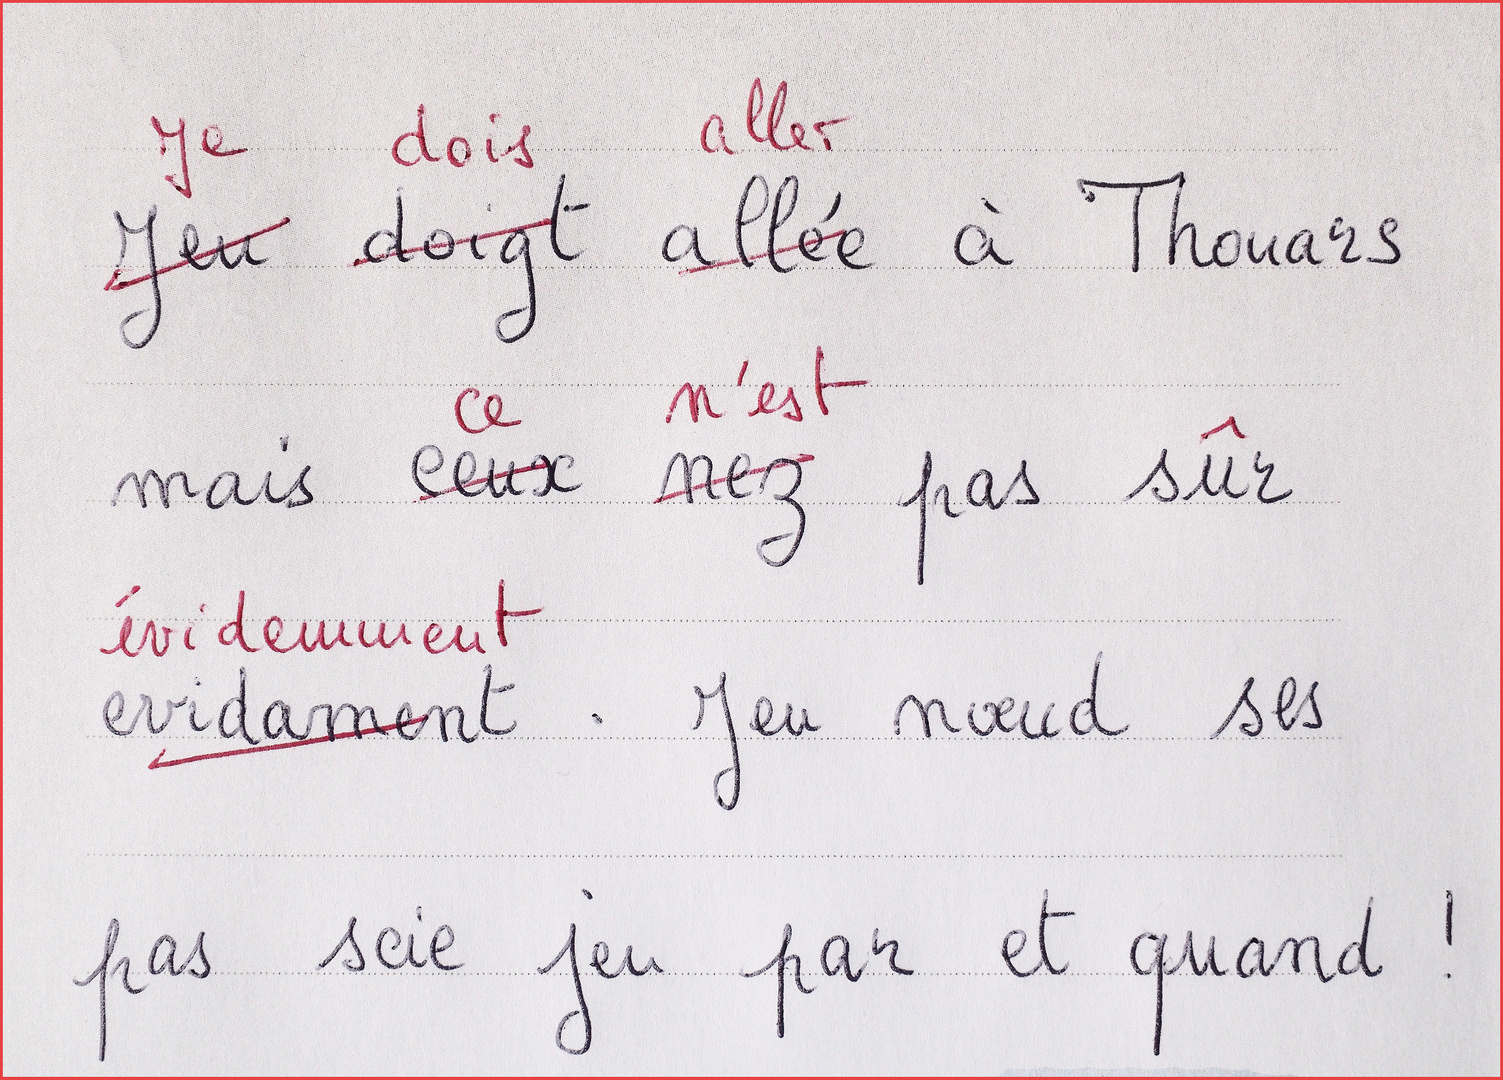 Je dois aller
Jeu doigt allée à Thouars
ce n'est
mais ceux nez pas sûr
évidemment
evidament . Jeu nœud ses
pas scie jeu par et quand !